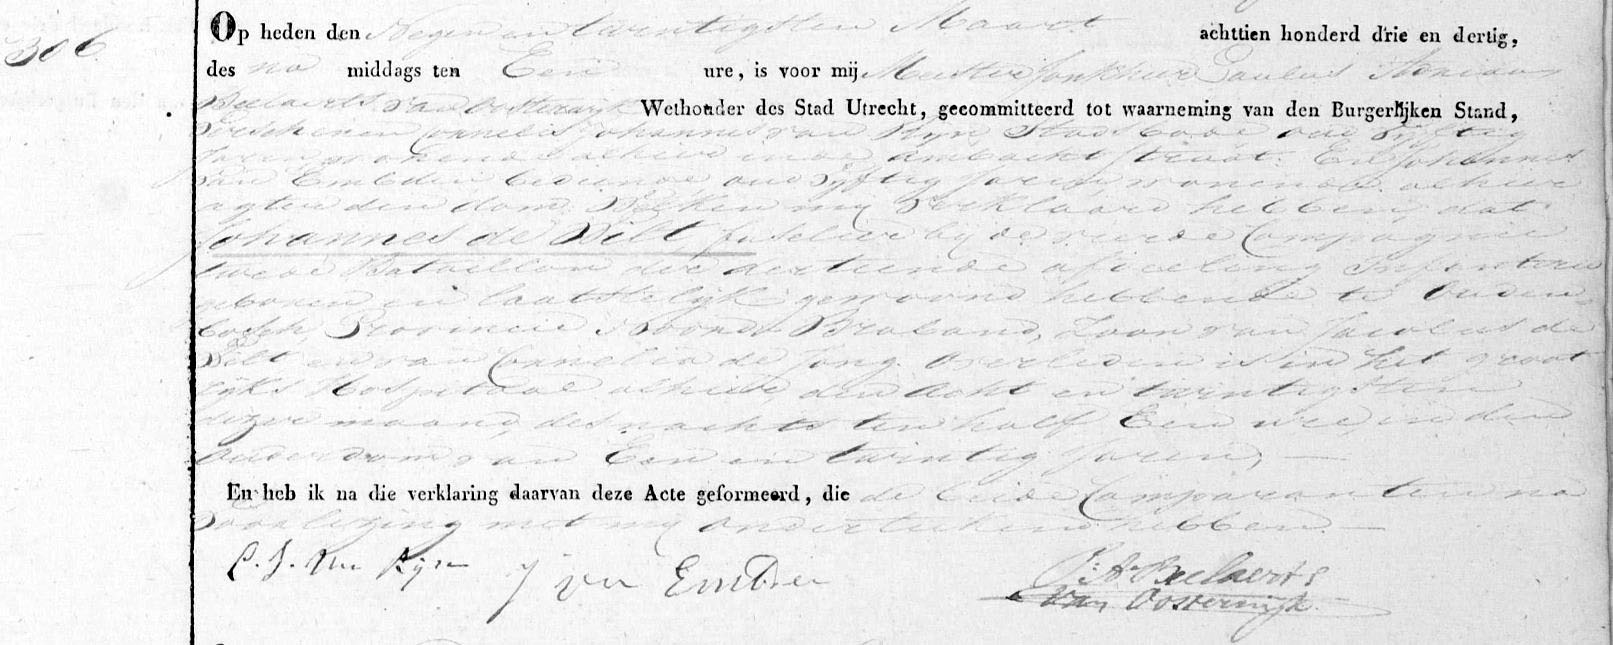 306
Op heden den Negen en twintigsten Maart achttien honderd drie en dertig,
des na middags ten Een ure, is voor mij Meester Jonkheer Paulus Adriaan
Beelaerts van Oosterwijk Wethouder des Stad Utrecht, gecommitteerd tot waarneming van den Burgerlijken Stand,
verschenen Cornelis Johannes van Rijn, Stadsbode oud vijftig
Jaren wonende alhier in de ambachtstraat. En Johannes
van Embden bediende oud vijftig Jaren wonende alhier
agter den dom. Welken my verklaard hebben, dat
Johannes de Wilt fuselier bij de vierde Compagnie
twede Bataillon der dertiende afdeeling Infanterie
geboren en laatstelijk gewoond hebbende te Ouden
bosch, Provincie Noord Braband, Zoon van Jacobus de
Wilt en van Cornelia de Jong overleden is in het groot
rijks Hospitaal alhier den acht en twintigsten
dezer maand, des nachts ten half Een ure, in den
ouderdom van Een en twintig Jaren,
En heb ik na die verklaring daarvan deze Acte geformeerd, die de beide Comparanten na
voorlezing met my ondertekend hebben
C. J. Van Rijn J van Embden P: A: Beelaerts
van Oosterwijk